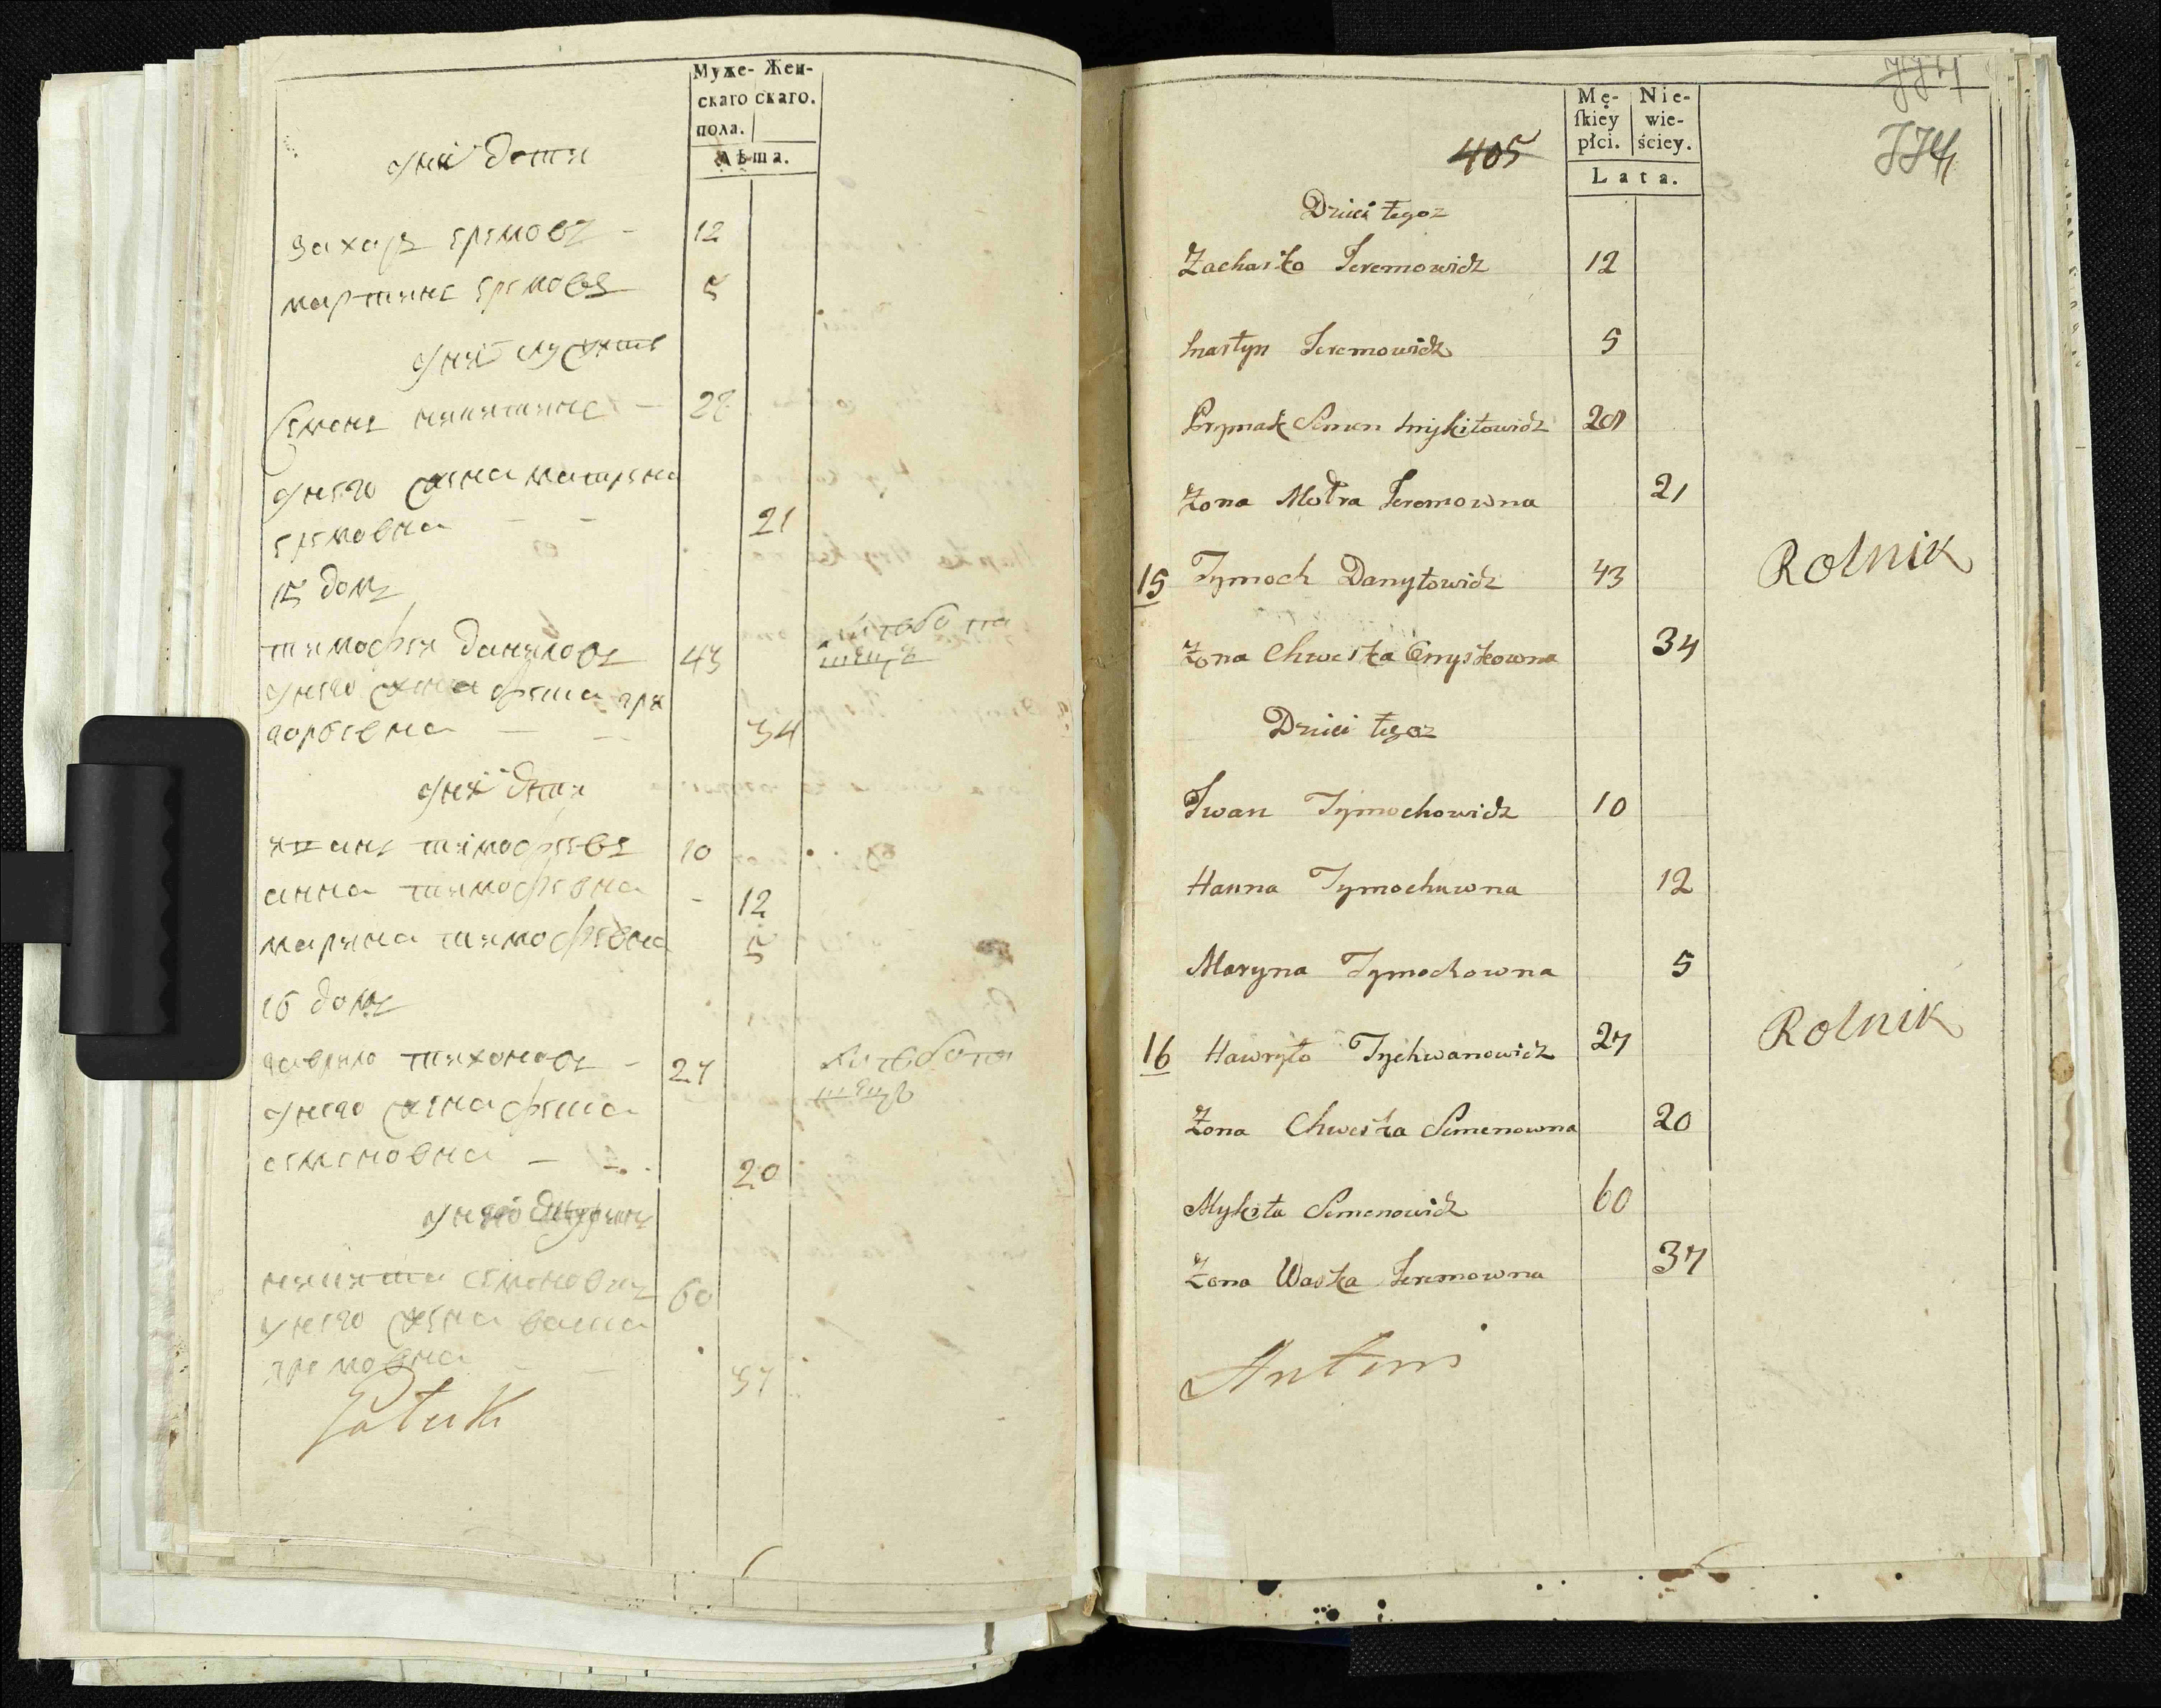 Муже- Жен-
скаго скаго.
пола.
Лѣта.
у них дети
захаръ еремовъ - 12
мартинъ еремовъ 5
Семенъ никитинъ - 28
у него жена матрена
еремовна - - 21
15 домъ
тимофей даниловъ 43
у него жена феша гри
горьевна - - 34
у них дети
иванъ тимофеевъ 10
анна тимофевна - 12
марина тимофевна 5
16 домъ
гаврило тихоновъ - 27
у него жена феша
семеновна - - 20
никита семеновичъ 60
у него жена ваша
еремовна - - 37
405
Mę- Nie-
ſkiey wie-
płci. ściey.
Lata.
Dzieci tegoz
Zacharko Jeremowicz 12
Martyn Jeremowicz 5
Prymak Semen Mykitowicz 28
Zona Motra Jeremowna 21
15 Tymoch Danyłowicz 43 Rolnik
Zona Chweska 34
Dzieci tegoz
Iwan Tymochowicz 10
Hanna Tymochowna 12
Maryna Tymochowna 5
16 Hawryło Tychwanowicz 27 Rolnik
Zona Chweska Semenowna 20
Mykita Semenowicz 60
Zona Waska Jeremowna 37
Antoni